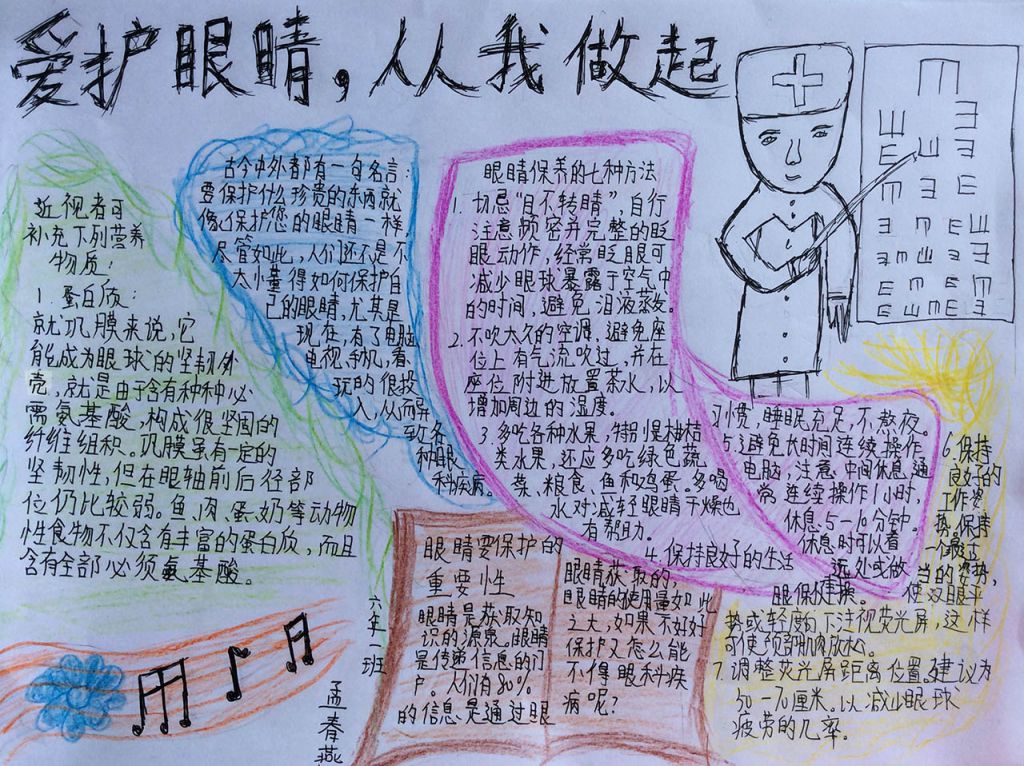 爱护眼睛,从我做起
近视者可
补充下列营养
物质:
1.蛋白质:
就巩膜来说,它
能成为眼球的坚韧外
壳,就是由于含有种种必
需氨基酸,构成很坚固的
纤维组织。巩膜虽有一定的
坚韧性,但在眼轴前后径部
位仍比较弱。鱼、肉、蛋、奶等动物
性食物不仅含有丰富的蛋白质,而且
含有全部必须氨基酸。
古今中外都有一句名言:
要保护什么珍贵的东西就
像保护您的眼睛一样
尽管如此,人们还不是不
太小懂得如何保护自
己的眼睛,尤其是
现在,有了电脑
电视、手机,看
玩的很投
入,从而导
致各
种眼
科疾病。
眼睛保养的七种方法
1.切忌“目不转睛”,自行
注意频密并完整的眨
眼动作,经常眨眼可
减少眼球暴露于空气中
的时间,避免泪液蒸发。
2.不吹太久的空调,避免座
位上有气流吹过,并在
座位附近放置茶水,以
增加周边的湿度。
3.多吃各种水果,特别是柑桔
类水果,还应多吃绿色蔬
菜、粮食、鱼和鸡蛋。多喝
水对减轻眼睛干燥也
有帮助。
4.保持良好的生活
习惯,睡眠充足,不熬夜。
5.避免长时间连续操作
电脑,注意中间休息,通
常连续操作1小时,
休息5-10分钟。
休息时可以看
远处或做
眼保健操。
6.保持
良好的
工作姿
势。保持
一个最适
当的姿势,
使双眼平
势或轻度向下注视荧光屏,这样
可使颈部肌肉放松。
7.调整荧光屏距离位置。建议为
50-70厘米。以减少眼球
疲劳的几率。
眼睛要保护的
重要性
眼睛是获取知
识的源泉。眼睛
是传递信息的门
户。人们有80%
的信息是通过眼
眼睛获取的,
眼睛的使用量如此
之大,如果不好好
保护又怎么能
不得眼科疾
病呢?
六年一班
孟春燕